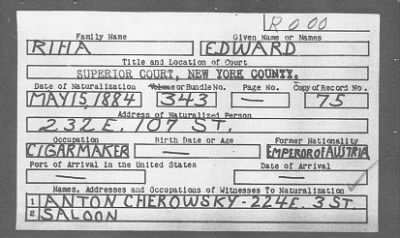 R000
Family Name Given Name or Names
RIHA EDWARD
Title and Location of Court
SUPERIOR COURT, NEW YORK COUNTY.
Date of Naturalization Volume or Bundle No. Page No. Copy of Record No.
MAY 15, 1884 343 — 75
Address of Naturalized Person
232 E. 107 ST.
Occupation Birth Date or Age Former Nationality
CIGARMAKER — EMPEROR OF AUSTRIA
Port of Arrival in the United States Date of Arrival
— —
Names, Addresses and Occupations of Witnesses To Naturalization
1 ANTON CHEROWSKY - 224 E. 3 ST.
2 SALOON